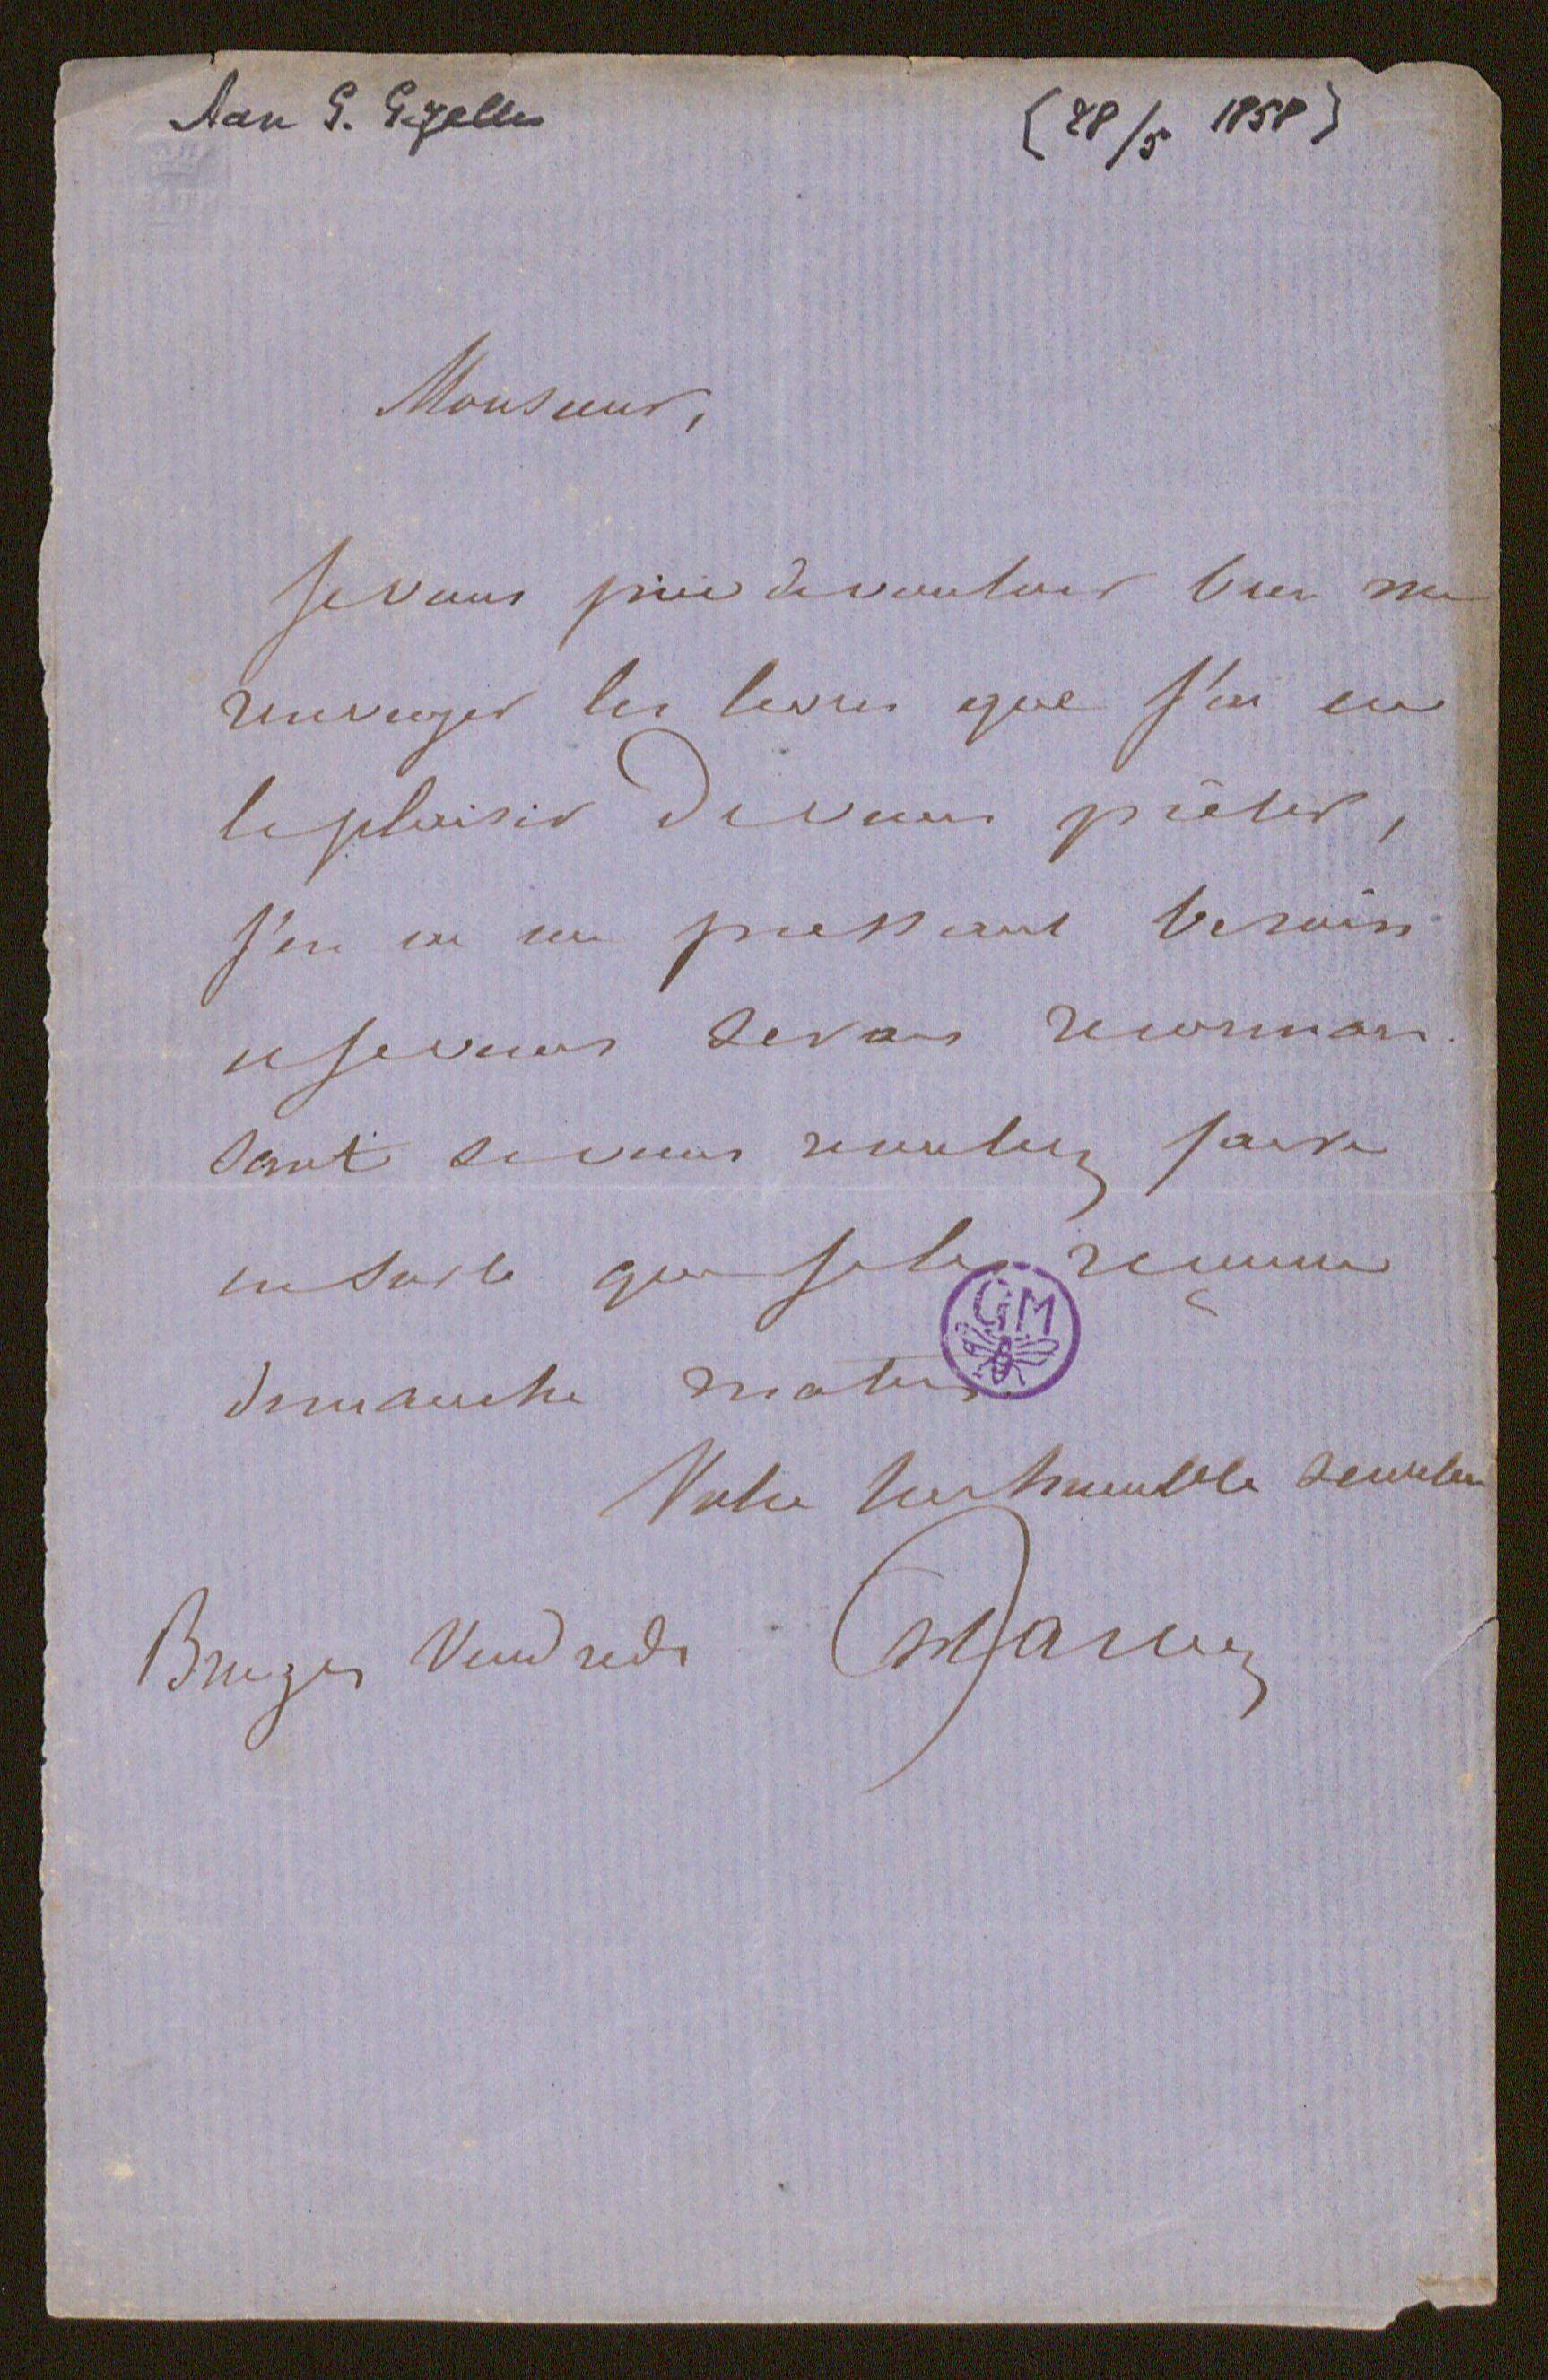 Aan G. Gezelle
(28/5 1858)
Monsieur,
Je vous prie de vouloir bien me
renvoyer les livres que j'ai eu
le plaisir de vous prêter,
j'en ai un pressant besoin
et je vous serais reconnais-
sant si vous vouliez faire
en sorte que je les reçusse
dimanche matin.
GM
Votre très humble serviteur
Bruges Vendredi